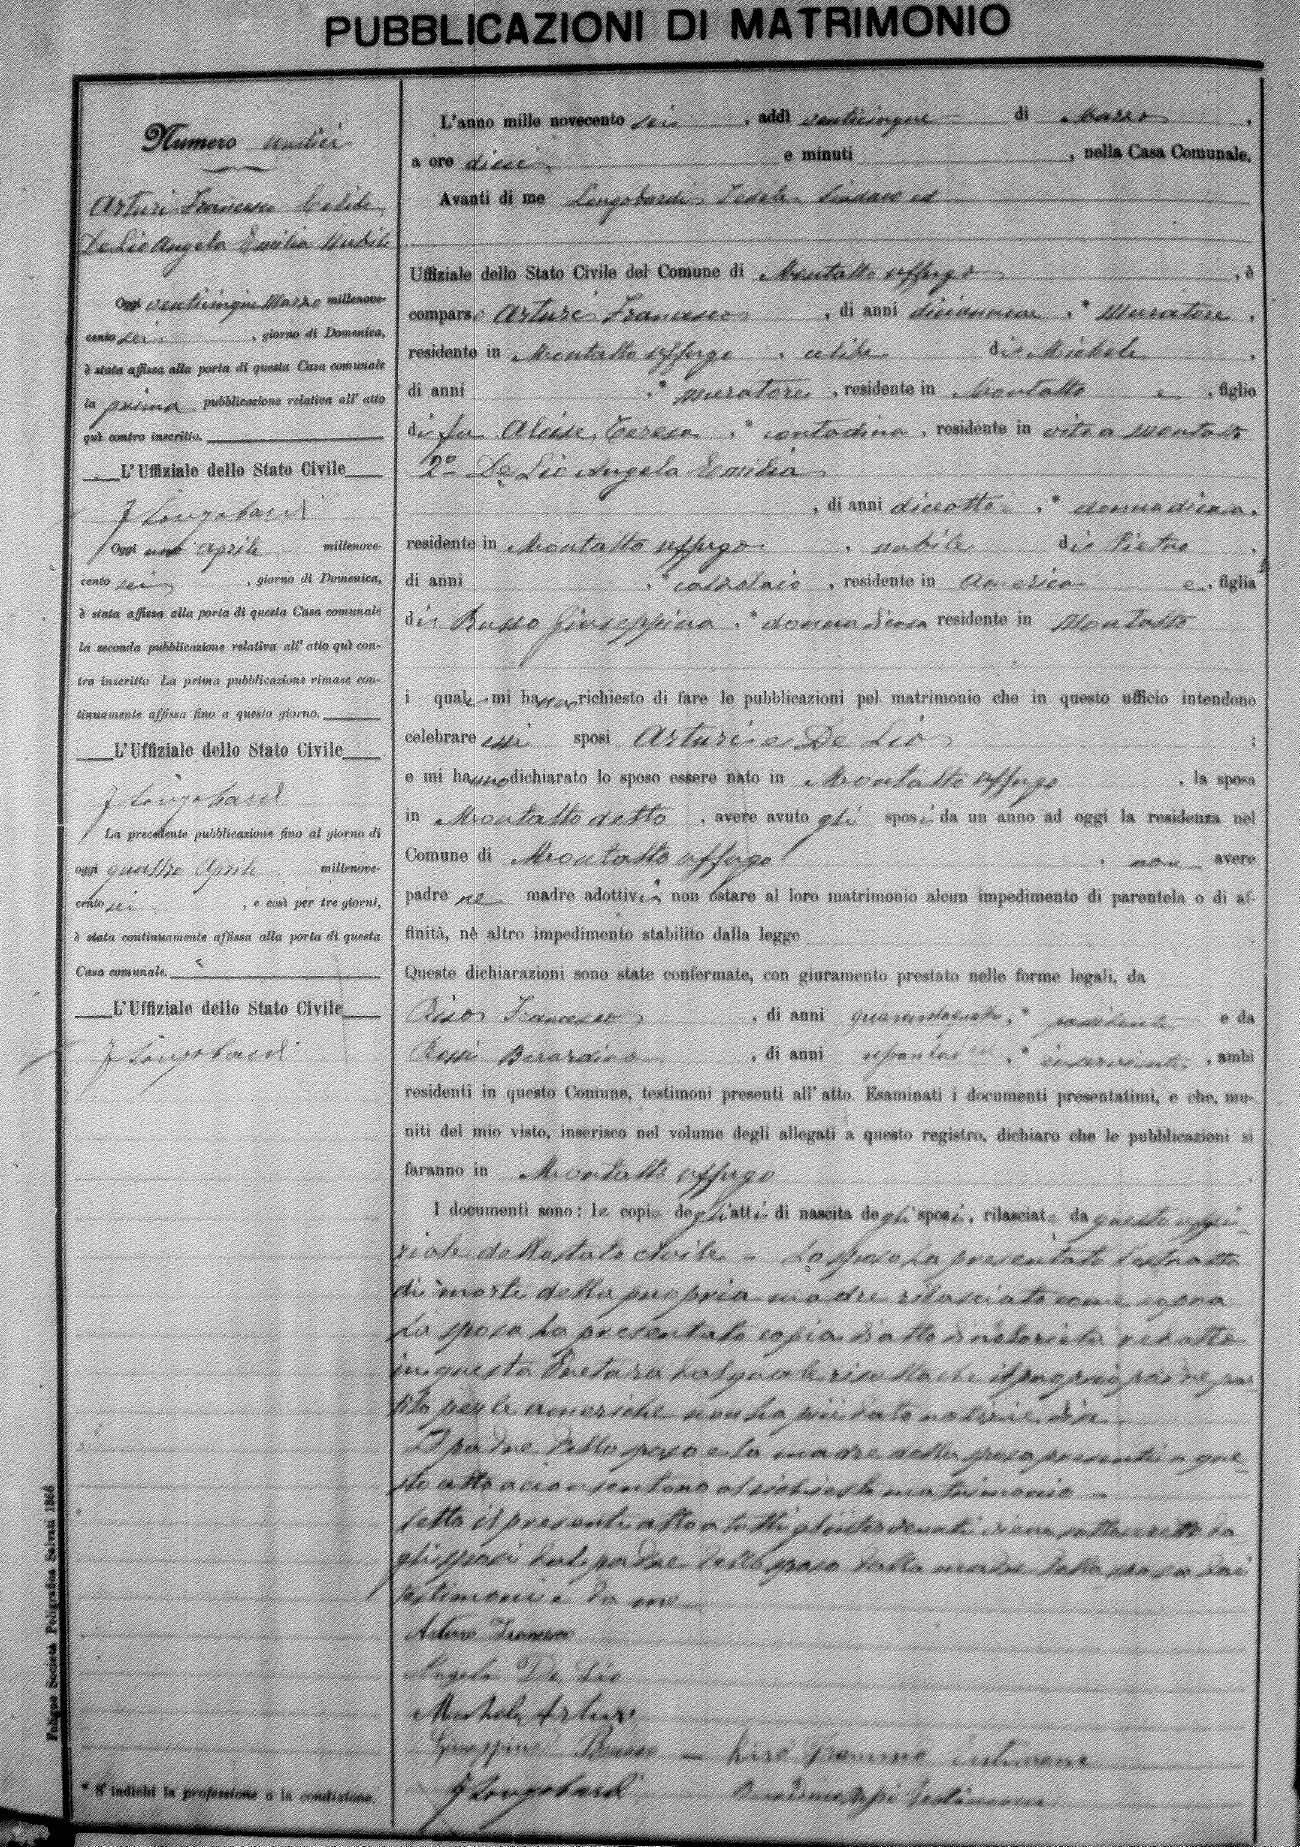 PUBBLICAZIONI DI MATRIMONIO
Numero undici
Arturi Francesco Celibe
De Lio Angela Emilia Nubile
Oggi venticinque Marzo millenove-
cento sei, giorno di Domenica,
è stata affissa alla porta di questa Casa comunale
la prima pubblicazione relativa all' atto
quì contro inscritto.
L'Uffiziale dello Stato Civile
F Longobardi
Oggi uno Aprile millenove-
cento sei, giorno di Domenica,
è stata affissa alla porta di questa Casa comunale
la seconda pubblicazione relativa all' atto quì con-
tro inscritto La prima pubblicazione rimase con-
tinuamente affissa fino a questo giorno.
L'Uffiziale dello Stato Civile
F Longobardi
La precedente pubblicazione fino al giorno di
oggi quattro Aprile millenove-
cento sei, e così per tre giorni,
è stata continuamente affissa alla porta di questa
Casa comunale.
L'Uffiziale dello Stato Civile
F Longobardi
* S'indichi la professione o la condizione.
Foligno Società Poligrafica Salvati
L'anno mille novecento sei, addì venticinque di Marzo,
a ore dieci e minuti, nella Casa Comunale,
Avanti di me Longobardi Fedele Sindaco ed
Uffiziale dello Stato Civile del Comune di Montalto Uffugo, è
comparso Arturi Francesco, di anni diciannove, * Muratore,
residente in Montalto Uffugo, celibe di Michele,
di anni, * muratore, residente in Montalto e, figlio
di fu Teresa, * contadina, residente in vita a Montalto
2° De Lio Angela Emilia
, di anni diciotto, * donna di casa,
residente in Montalto Uffugo, nubile di Pietro,
di anni, * calzolaio, residente in America e, figlia
di Busso Giuseppina, * donna di casa residente in Montalto
i quali mi hanno richiesto di fare le pubblicazioni pel matrimonio che in questo ufficio intendono
celebrare essi sposi Arturi e De Lio;
e mi hanno dichiarato lo sposo essere nato in Montalto Uffugo, la sposa
in Montalto detto, avere avuto gli sposi da un anno ad oggi la residenza nel
Comune di Montalto Uffugo, non avere
padre ne madre adottivi, non ostare al loro matrimonio alcun impedimento di parentela o di af-
finità, nè altro impedimento stabilito dalla legge
Queste dichiarazioni sono state confermate, con giuramento prestato nelle forme legali, da
Riso Francesco, di anni, * possidente e da
Berardino, di anni, * inserviente, ambi
residenti in questo Comune, testimoni presenti all' atto. Esaminati i documenti presentatimi, e che, mu-
niti del mio visto, inserisco nel volume degli allegati a questo registro, dichiaro che le pubblicazioni si
faranno in Montalto Uffugo
I documenti sono: le copie degli atti di nascita degli sposi, rilasciate da questo uffi-
ziale dello stato civile - Lo sposo ha presentato l'estratto
di morte della propria madre rilasciato come sopra
La sposa ha presentato copia d'atto di notorietà redatto
in questa Pretura dal quale risulta che il proprio padre par-
tito per le americhe non ha più dato notizie di se
Il padre dello sposo e la madre della sposa presenti a que-
sto atto acconsentono al richiesto matrimonio -
Letto il presente atto a tutti gli intervenuti viene sottoscritto da
gli sposi dal padre dello sposo dalla madre della sposa dai
testimoni e da me
Arturo Francesco
Angela De Lio
Michele Arturi
Giuseppina Busso - Riso Francesco testimone
F Longobardi testimone